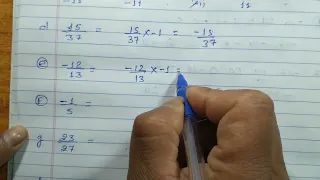 d 15/37 = 15/37 × -1 = -15/37
e -12/13 = -12/13 × -1 =
f -1/5 =
g 23/27 =